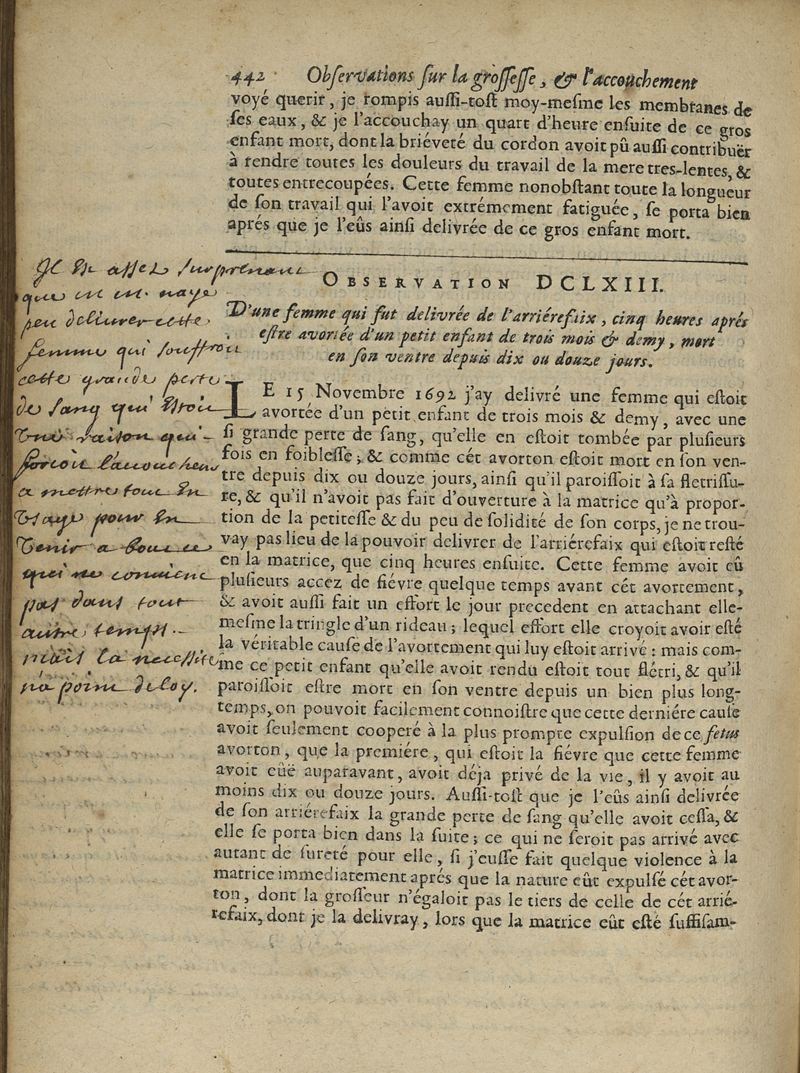 442 Obſervations ſur la groſſeſſe, & l'accouchement
voyé querir, je rompis auſſi-toſt moy-meſme les membranes de
ſes eaux, & je l'accouchay un quart d'heure enſuite de ce gros
enfant mort, dont la briéveté du cordon avoit pû auſſi contribuër
à rendre toutes les douleurs du travail de la mere tres-lentes, &
toutes entrecoupées. Cette femme nonobſtant toute la longueur
de ſon travail qui l'avoit extrémement fatiguée, ſe porta bien
aprés que je l'eûs ainſi delivrée de ce gros enfant mort.
OBSERVATION DCLXIII.
D'une femme qui fut delivrée de l'arriérefaix, cinq heures aprés
eſtre avortée d'un petit enfant de trois mois & demy, mort
en ſon ventre depuis dix ou douze jours.
LE 15 Novembre 1692 j'ay delivré une femme qui eſtoit
avortée d'un petit enfant de trois mois & demy, avec une
ſi grande perte de ſang, qu'elle en eſtoit tombée par pluſieurs
fois en foibleſſe; & comme cét avorton eſtoit mort en ſon ven-
tre depuis dix ou douze jours, ainſi qu'il paroiſſoit à ſa fletriſſu-
re, & qu'il n'avoit pas fait d'ouverture à la matrice qu'à propor-
tion de la petiteſſe & du peu de ſolidité de ſon corps, je ne trou-
vay pas lieu de la pouvoir delivrer de l'arriérefaix qui eſtoit reſté
en la matrice, que cinq heures enſuite. Cette femme avoit eû
pluſieurs accez de fiévre quelque temps avant cét avortement,
& avoit auſſi fait un effort le jour precedent en attachant elle-
meſme la tringle d'un rideau; lequel effort elle croyoit avoir eſté
la véritable cauſe de l'avortement qui luy eſtoit arrivé: mais com-
me ce petit enfant qu'elle avoit rendu eſtoit tout flétri, & qu'il
paroiſſoit eſtre mort en ſon ventre depuis un bien plus long-
temps, on pouvoit facilement connoiſtre que cette derniére cauſe
avoit ſeulement cooperé à la plus prompte expulſion de ce fetus
avorton, que la premiére, qui eſtoit la fiévre que cette femme
avoit eüe auparavant, avoit déja privé de la vie, il y avoit au
moins dix ou douze jours. Auſſi-toſt que je l'eûs ainſi delivrée
de ſon arriérefaix la grande perte de ſang qu'elle avoit ceſſa, &
elle ſe porta bien dans la ſuite; ce qui ne ſeroit pas arrivé avec
autant de ſureté pour elle, ſi j'euſſe fait quelque violence à la
matrice immediatement aprés que la nature eût expulſé cét avor-
ton, dont la groſſeur n'égaloit pas le tiers de celle de cét arrié-
refaix, dont je la delivray, lors que la matrice eût eſté ſuffiſam-
Il est assez surprenant
que
peu delivrer cette
femme qui souffroit
cette grande perte
de sang qui
raison qui
forcoit l'accoucheur
a mettre tout en
pour en
venir a bout
qui ne convient
pas dans tout
autre temps.
mais la necessité
na point de loy.